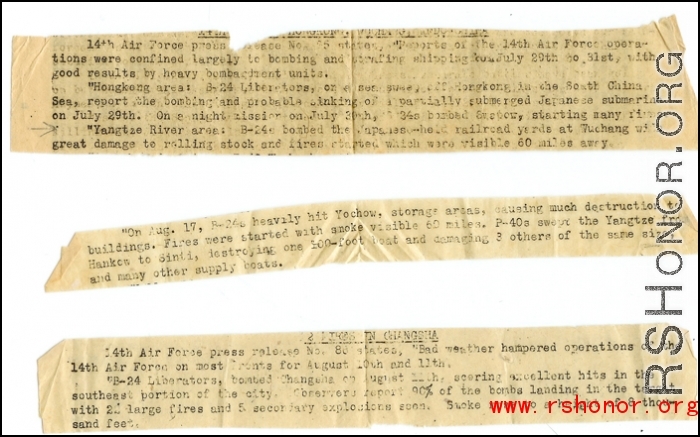 14th Air Force press release No. 75 states, "Reports of the 14th Air Force opera-
tions were confined largely to bombing and strafing shipping on July 29th to 31st, with
good results by heavy bombardment units.
"Hongkong area: B-24 Liberators, on a sea sweep off Hongkong in the South China
Sea, report the bombing and probable sinking of a partially submerged Japanese submarin
on July 29th. On a night mission on July 30th, B-24s bombed Swatow, starting many fir
"Yangtze River area: B-24s bombed the Japanese-held railroad yards at Wuchang wi
great damage to rolling stock and fires started which were visible 60 miles away.
"On Aug. 17, B-24s heavily hit Yochow, storage areas, causing much destruction t
buildings. Fires were started with smoke visible 60 miles. P-40s swept the Yangtze fr
Hankow to Sinti, destroying one 500-foot boat and damaging 3 others of the same si
and many other supply boats.
FIRES IN CHANGSHA
14th Air Force press release No. 80 states, "Bad weather hampered operations of th
14th Air Force on most fronts for August 10th and 11th.
"B-24 Liberators, bombed Changsha on August 11th, scoring excellent hits in the
southeast portion of the city. Observers report 90% of the bombs landing in the
with 22 large fires and 5 secondary explosions seen. Smoke to a height of 6 thou
sand feet.
RSHONOR.ORG
www.rshonor.org